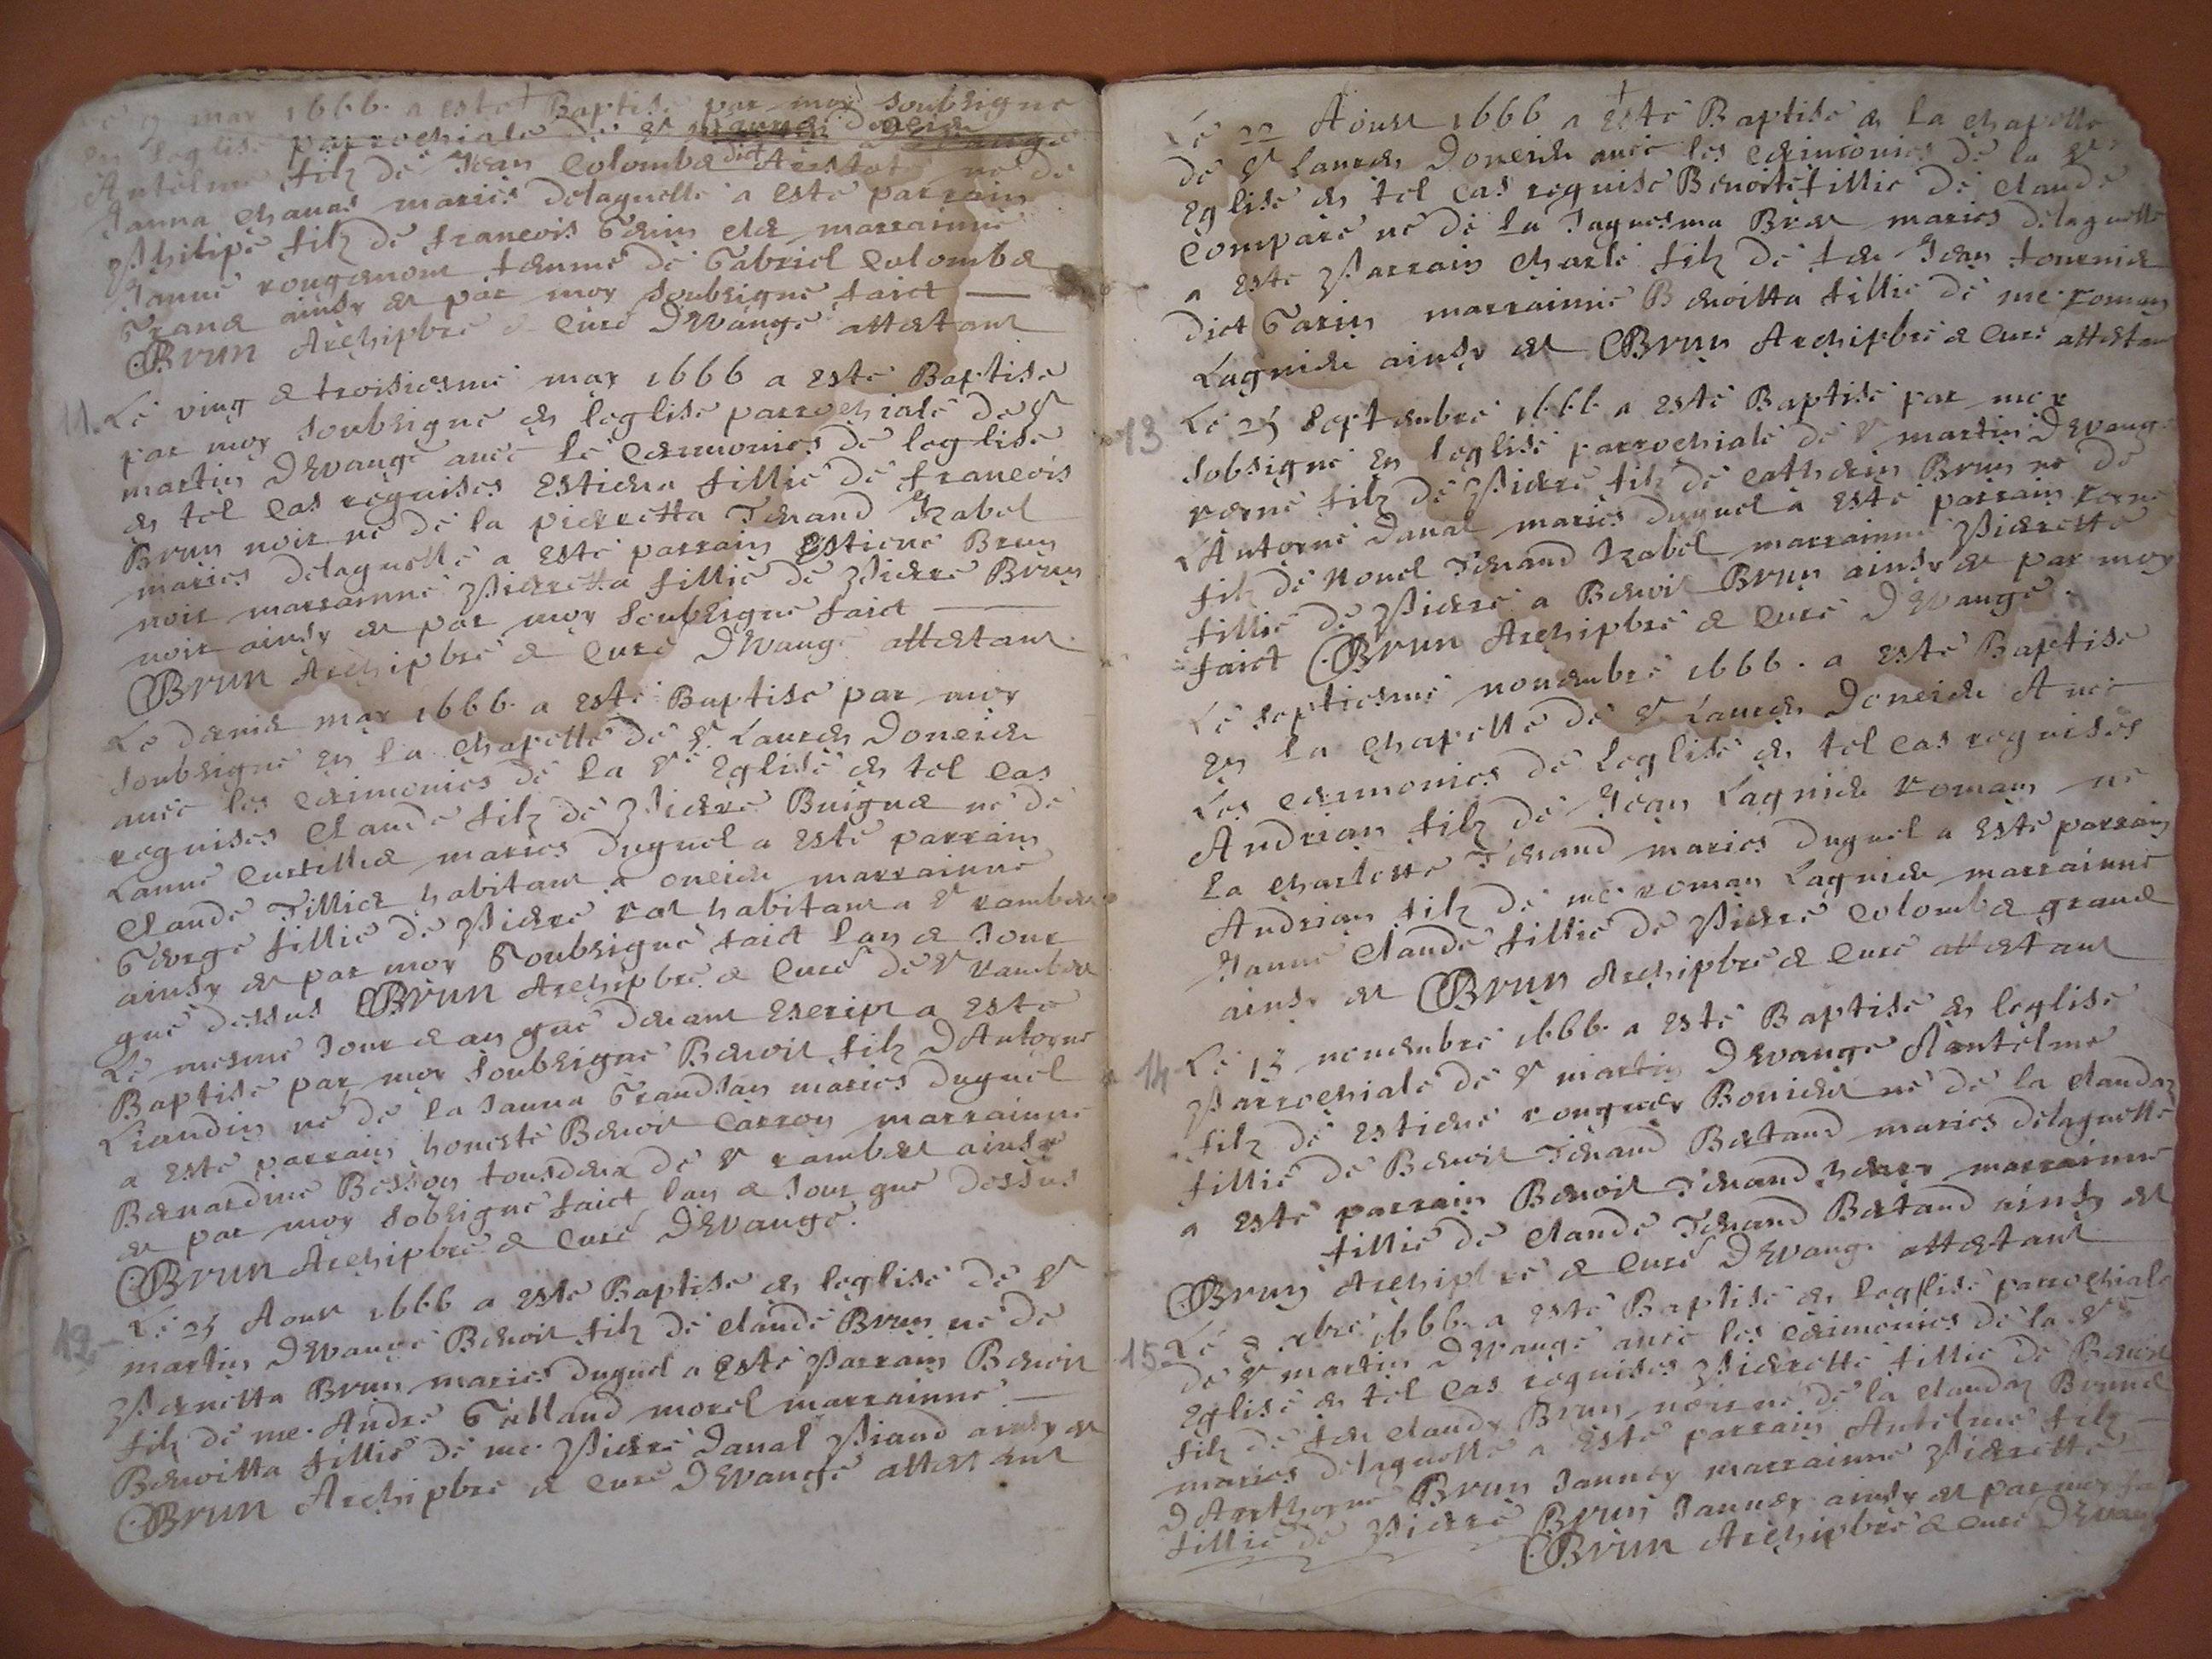 may 1666 a esté Baptisé par moy soubsigné
en leglise parrochiale de St
Antelme filz de Jean Colomb dict né de
Janna Chanas mariés delaquelle a esté parrain
Philipe filz de francois et marrainne
Janne femme de Gabriel Colomb
Grand ainsy est par moy soubsigné faict
Brun Archipbre & Curé DEvange attestant
11. Le ving & troisiesme may 1666 a esté Baptisé
par moy soubsigné en leglise parrochiale de St
martin DEvange avec le ceremonies de leglise
en tel cas requises Estiena fillie de francois
Brun noir né de la pierretta Tenand Izabel
mariés delaquelle a esté parrain Estiene Brun
noir marrainne Pierretta fillie de Pierre Brun
noir ainsy est par moy soubsigné faict
Brun Archipbre & Curé DEvange attestant
Le dernier may 1666 a esté Baptisé par moy
soubsigné en la chapelle de St Laurens Doneieu
avec les cerimonies de la Ste Eglise en tel cas
requises Claude filz de Pierre Buignet né de
Lanne Curtillet mariés duquel a esté parrain
Claude Tillier habitant a oneieu marrainne
George fillie de Pierre rat habitant a St rambert
ainsy est par moy Soubsigné faict lan & Jour
que dessus Brun Archipbre & Curé de St Rambert
Le mesme Jour & an que devant Escript a esté
Baptisé par moy soubsigné Benoit filz DAntoyne
Liandin né de la Janna Grandjan mariés duquel
a esté parrain honeste Benoit Carron marrainne
Bernardine Besson tousdeux de St rambert ainsy
est par moy sobsigné faict lan & Jour que dessus
Brun Archipbre & Curé DEvange.
12. Le 25 Aoust 1666 a esté Baptisé en leglise de St
martin DEvange Benoit filz de Claude Brun né de
Pernetta Brun mariés duquel a esté Parrain Benoit
filz de me. André Galland morel marrainne
Benoitta fillie de me. Pierre Danal Piand ainsy est
Brun Archipbre & Curé DEvange attestant
Le 22 Aoust 1666 a esté Baptisé en la chapelle
de St Laurens Doneieu avec les cerimonies de la Ste
Eglise en tel cas requise Benoite fillie de Claude
Compare né de la Jaquesma Bret mariés delaquelle
a esté Parrain Charle filz de feu Jean fournier
dict Garin marrainne Benoitta fillie de me. roman
Lagnieu ainsy est Brun Archipbre & Curé attestant
13 Le 25 septembre 1666 a esté Baptisé par moy
sobsigné en leglise parrochiale de St martin DEvange
rene filz de Pierre filz de Catherin Brun né de
LAntoyne Danal mariés duquel a esté parrain rene
filz de nouel Tenand Izabel marrainne Pierrette
fillie de Pierre a Benoit Brun ainsy est par moy
faict Brun Archipbre & Curé DEvange.
Le septiesme novembre 1666. a esté Baptisé
en la chapelle de St Laurens Doneieu Avec
Les ceremonies de Leglise en tel cas requises
Andrian filz de Jean Lagnieu roman né
La Charlotte Tenand mariés duquel a esté parrain
Andrian filz de me roman Lagnieu marrainne
Janne Claude fillie de Pierre Colomb grand
ainsy est Brun Archipbre & Curé attestant
14 Le 13 novembre 1666. a esté Baptisé en leglise
Parrochiale de St martin DEvange Antelme
filz de Estiene rouguey Bonnet né de la Claudaz
fillie de Benoit Tenand Bertand mariés delaquelle
a esté parrain Benoit Tenand marrainne
fillie de Claude Tenand Bertand ainsy est
Brun Archipbre & Curé DEvange attestant
15 Le 8 xbre 1666. a esté Baptisé en leglise parrochiale
de St martin DEvange avec les cerimonies de la Ste
Eglise en tel cas requises Pierrette fillie de Benoit
filz de feu Claude Brun noir né de la Claudaz Brunet
mariés delaquelle a esté parrain Antelme filz
DAnthoyne Brun Janney marrainne Pierrette
fillie de Pierre Brun Janney ainsy est par moy fa
Brun Archipbre & Curé DEvan